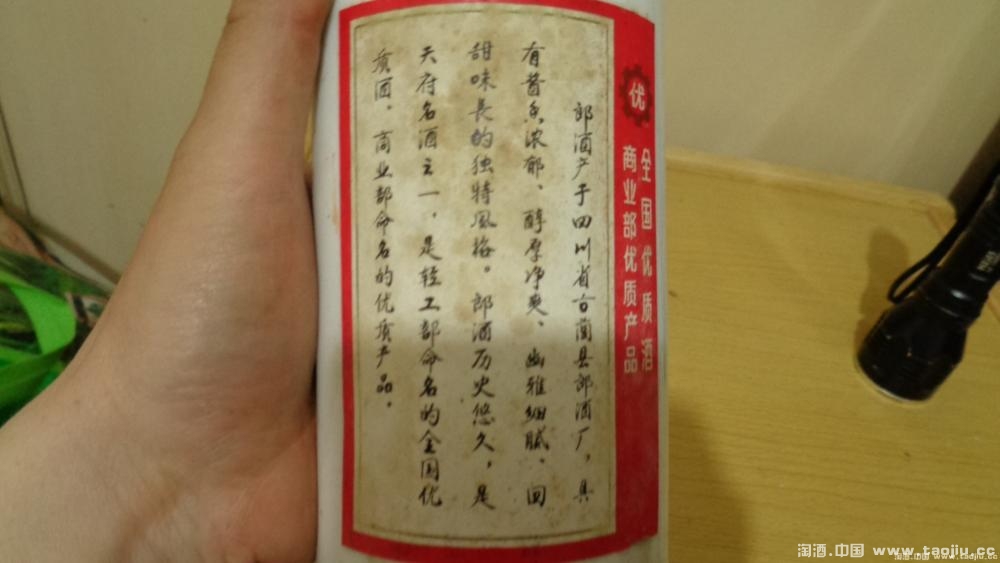 优
全国优质酒
商业部优质产品
郎酒产于四川省古蔺县郎酒厂，具
有酱香浓郁、醇厚净爽、幽雅细腻、回
甜味長的独特風格。郎酒历史悠久，是
天府名酒之一，是轻工部命名的全国优
质酒，商业部命名的优质产品。
淘酒.中国 www.taojiu.cc
淘酒.中国 www.taojiu.cc